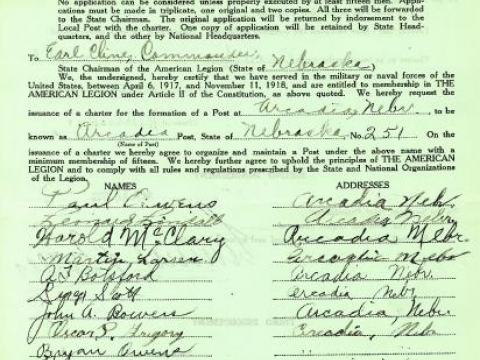 No application can be considered unless properly executed by at least fifteen men. Appli-
cations must be made in triplicate, one original and two copies. All three will be forwarded
to the State Chairman. The original application will be returned by indorsement to the
Local Post with the charter. One copy of application will be retained by State Head-
quarters, and the other by National Headquarters.
To Earl Cline, Commander,
State Chairman of the American Legion (State of Nebraska)
We, the undersigned, hereby certify that we have served in the military or naval forces of the
United States, between April 6, 1917, and November 11, 1918, and are entitled to membership in THE
AMERICAN LEGION under Article II of the Constitution, as above quoted. We hereby request the
issuance of a charter for the formation of a Post at Arcadia, Nebr. to be
known as Arcadia Post, State of Nebraska No. 251 On the
(Name of Post)
issuance of a charter we hereby agree to organize and maintain a Post under the above name with a
minimum membership of fifteen. We hereby further agree to uphold the principles of THE AMERICAN
LEGION and to comply with all rules and regulations prescribed by the State and National Organizations
of the Legion.
NAMES ADDRESSES
Paul Owens Arcadia Nebr.
Arcadia Nebr
Harold McClary Arcadia Nebr.
Martin Larsen Arcadia Nebr
A J Botsford Arcadia Nebr.
Scott Arcadia Nebr
John A. Bowers Arcadia, Nebr.
Oscar P. Gregory Arcadia, Nebr
Bryan Owens